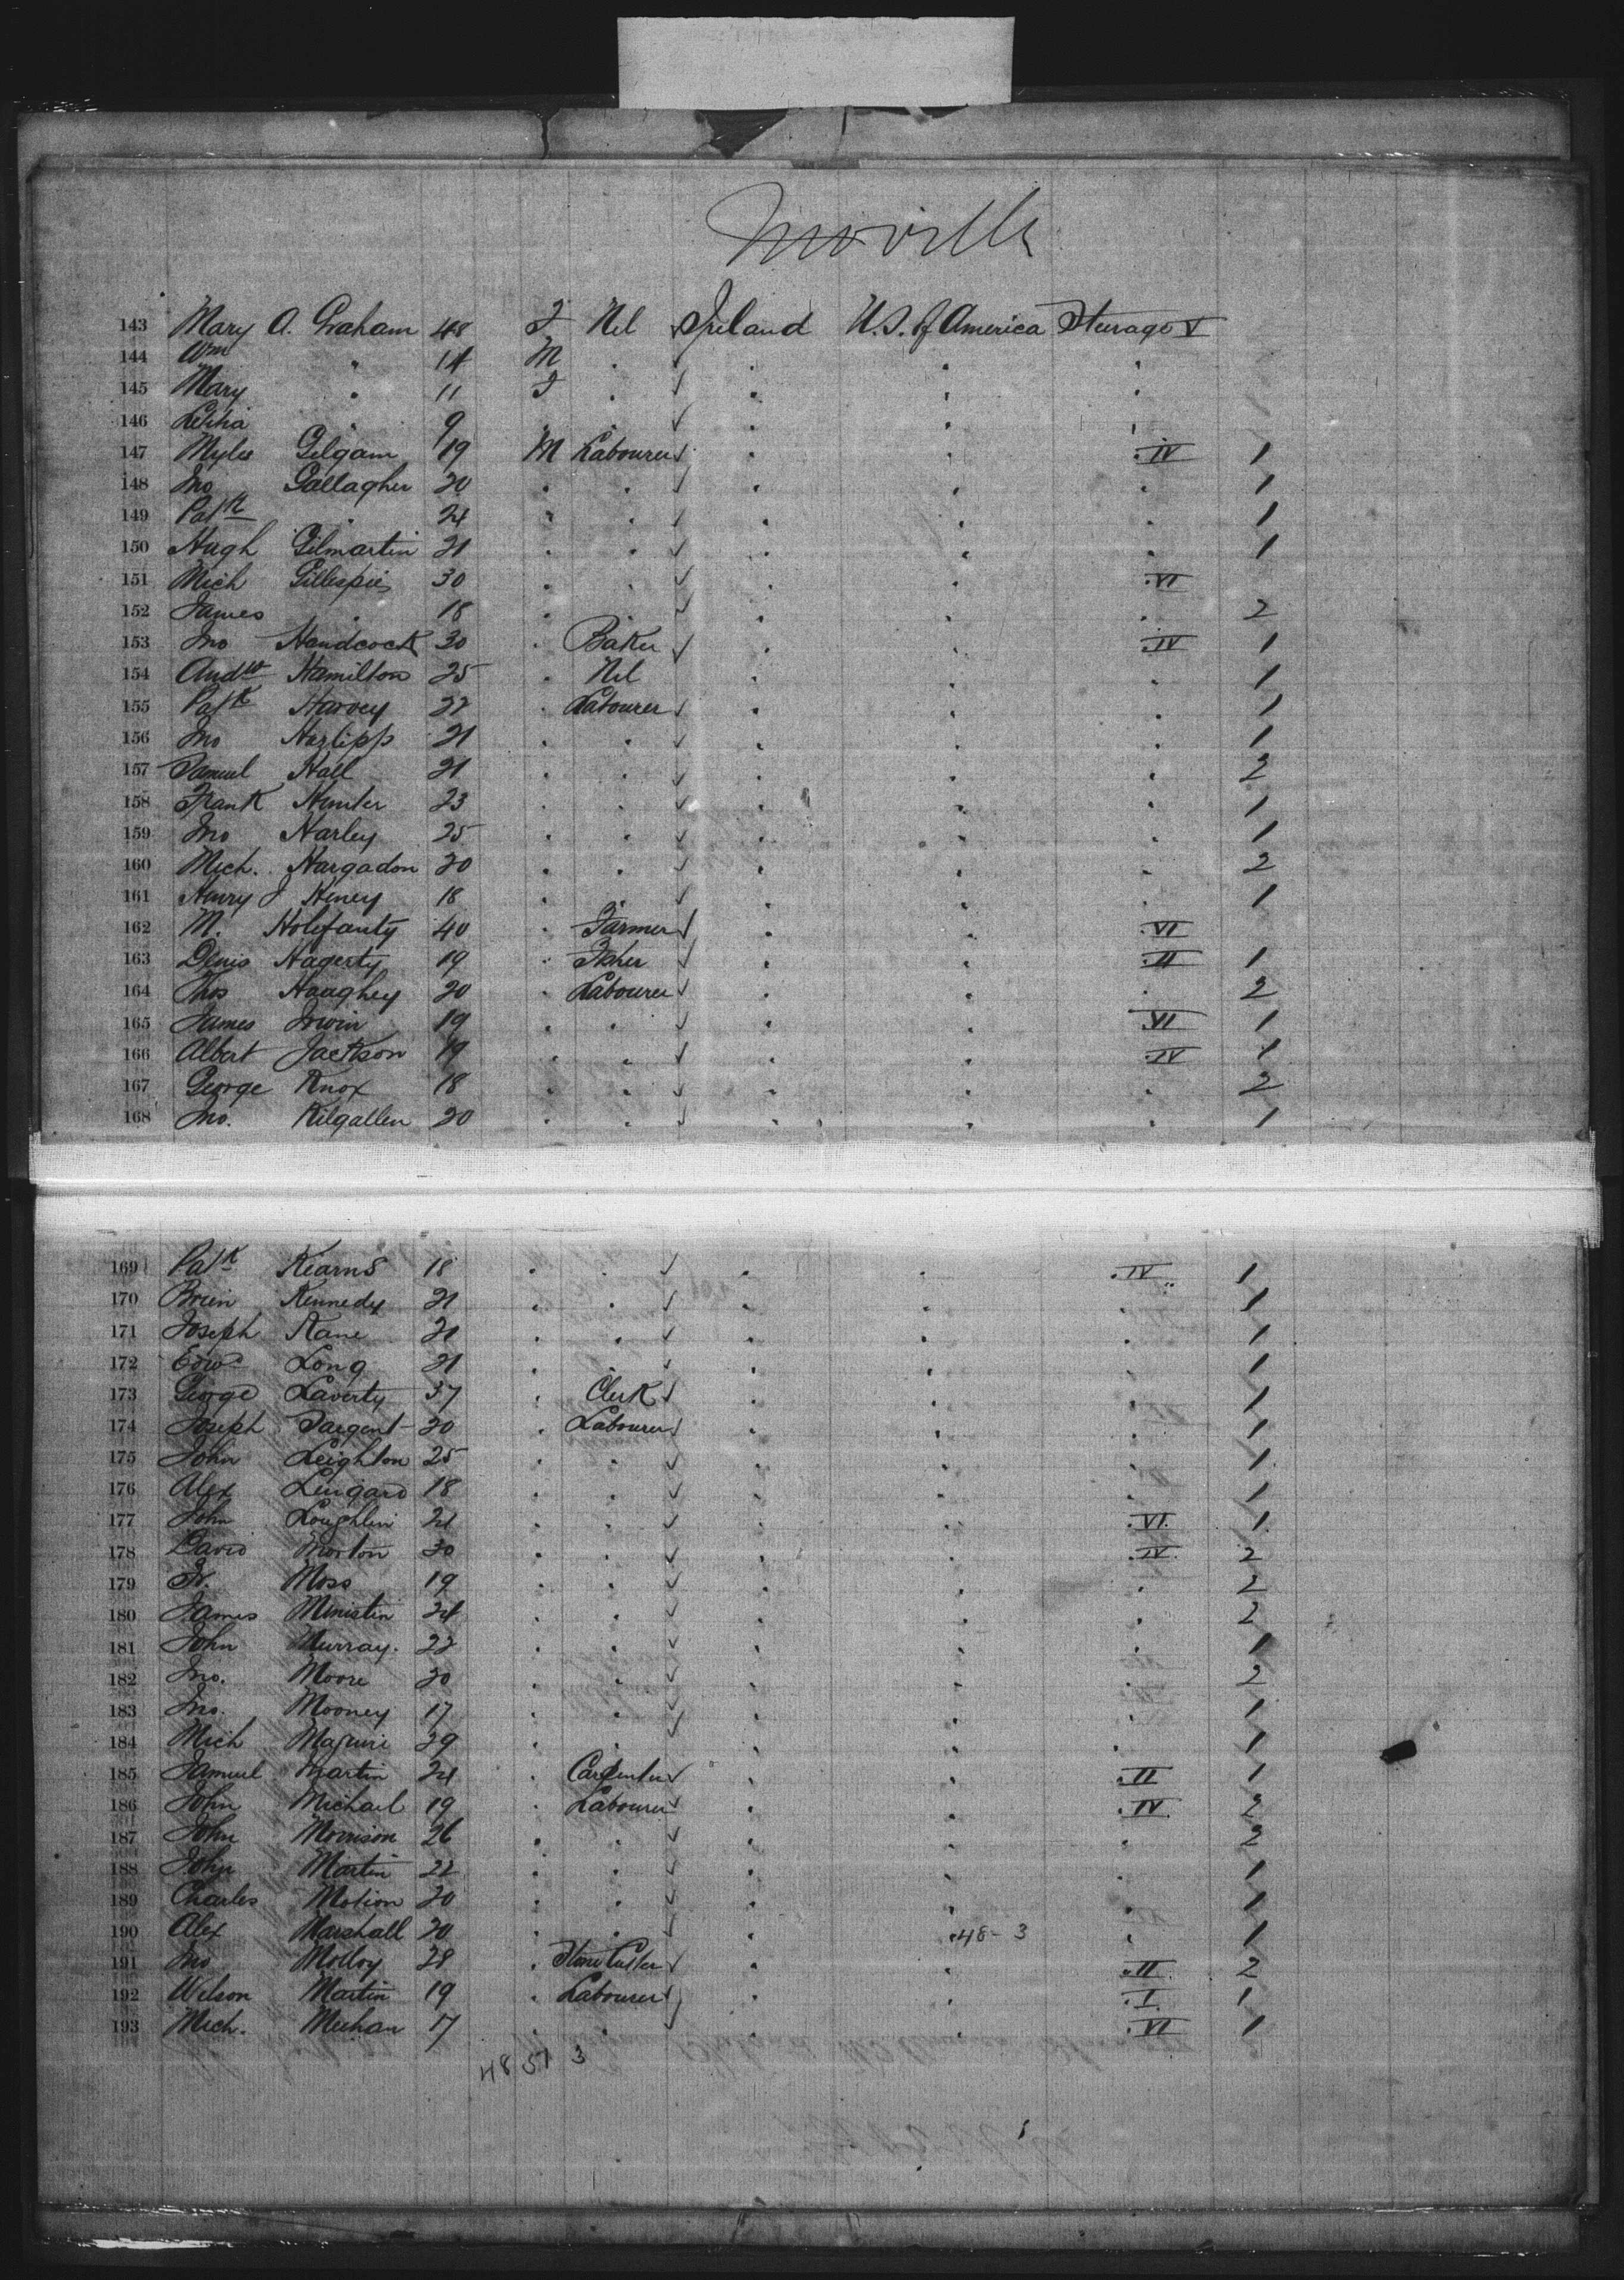 Moville
143 Mary A. Graham 48 F Nil √ Ireland U.S. of America Steerage V
144 Wm " 14 M . √ . . .
145 Mary " 11 F . √ . . .
146 Letitia " 9 . . √ . . .
147 Myles Gilgam 19 M Labourer √ . . . IV 1
148 Jno Gallagher 20 . . √ . . . 1
149 Patk " 24 . . √ . . . 1
150 Hugh Gilmartin 21 . . √ . . . 1
151 Mich Gillespie 30 . . √ . . . VI
152 James " 18 . . √ . . . 2
153 Jno Handcock 30 . Baker √ . . . IV 1
154 Andw Hamilton 25 . Nil . . . 1
155 Patk Harvey 22 . Labourer √ . . . 1
156 Jno Hazlipp 21 . . √ . . . 1
157 Samuel Hall 21 . . √ . . . 2
158 Frank Hunter 23 . . √ . . . 1
159 Jno Harley 25 . . √ . . . 1
160 Mich. Hargadon 20 . . √ . . . 2
161 Henry J Heney 18 . . √ . . . 1
162 M. 40 . Farmer √ . . . VI
163 Denis Hagerty 19 . Fisher √ . . . II 1
164 Thos Haughey 20 . Labourer √ . . . 2
165 James Irwin 19 . . √ . . . VI 1
166 Albert Jackson 19 . . √ . . . IV 1
167 George Knox 18 . . √ . . . 2
168 Jno. Kilgallen 20 . . √ . . . 1
169 Patk Kearns 18 . . √ . . . IV 1
170 Brien Kennedy 21 . . √ . . . 1
171 Joseph Kane 21 . . √ . . . 1
172 Edwd Long 21 . . √ . . . 1
173 George Laverty 37 . Clerk √ . . . 1
174 Joseph Sargent 20 . Labourer √ . . . 1
175 John Leighton 25 . . √ . . . 1
176 Alex Lingard 18 . . √ . . . 1
177 John Loughlin 21 . . √ . . . VI. 1
178 David Morton 30 . . √ . . . IV. 2
179 Moss 19 . . √ . . . 2
180 James Ministin 24 . . √ . . . 2
181 John Murray. 22 . . √ . . . 1
182 Jno. Moore 20 . . √ . . . 2
183 Jno. Mooney 17 . . √ . . . 1
184 Mich Maguire 29 . . √ . . . 1
185 Samuel Martin 24 . Carpenter √ . . . II 1
186 John Michael 19 . Labourer √ . . . IV 2
187 John Morrison 26 . . √ . . . 2
188 John Martin 22 . . √ . . . 1
189 Charles Motion 20 . . √ . . . 1
190 Alex Marshall 20 . . √ . . 48-3 . 1
191 Jno Molloy 28 . Stone Cutter √ . . . II 2
192 Wilson Martin 19 . Labourer √ . . . I 1
193 Mich. Meehan 17 . . √ . . . VI 1
48 51 3